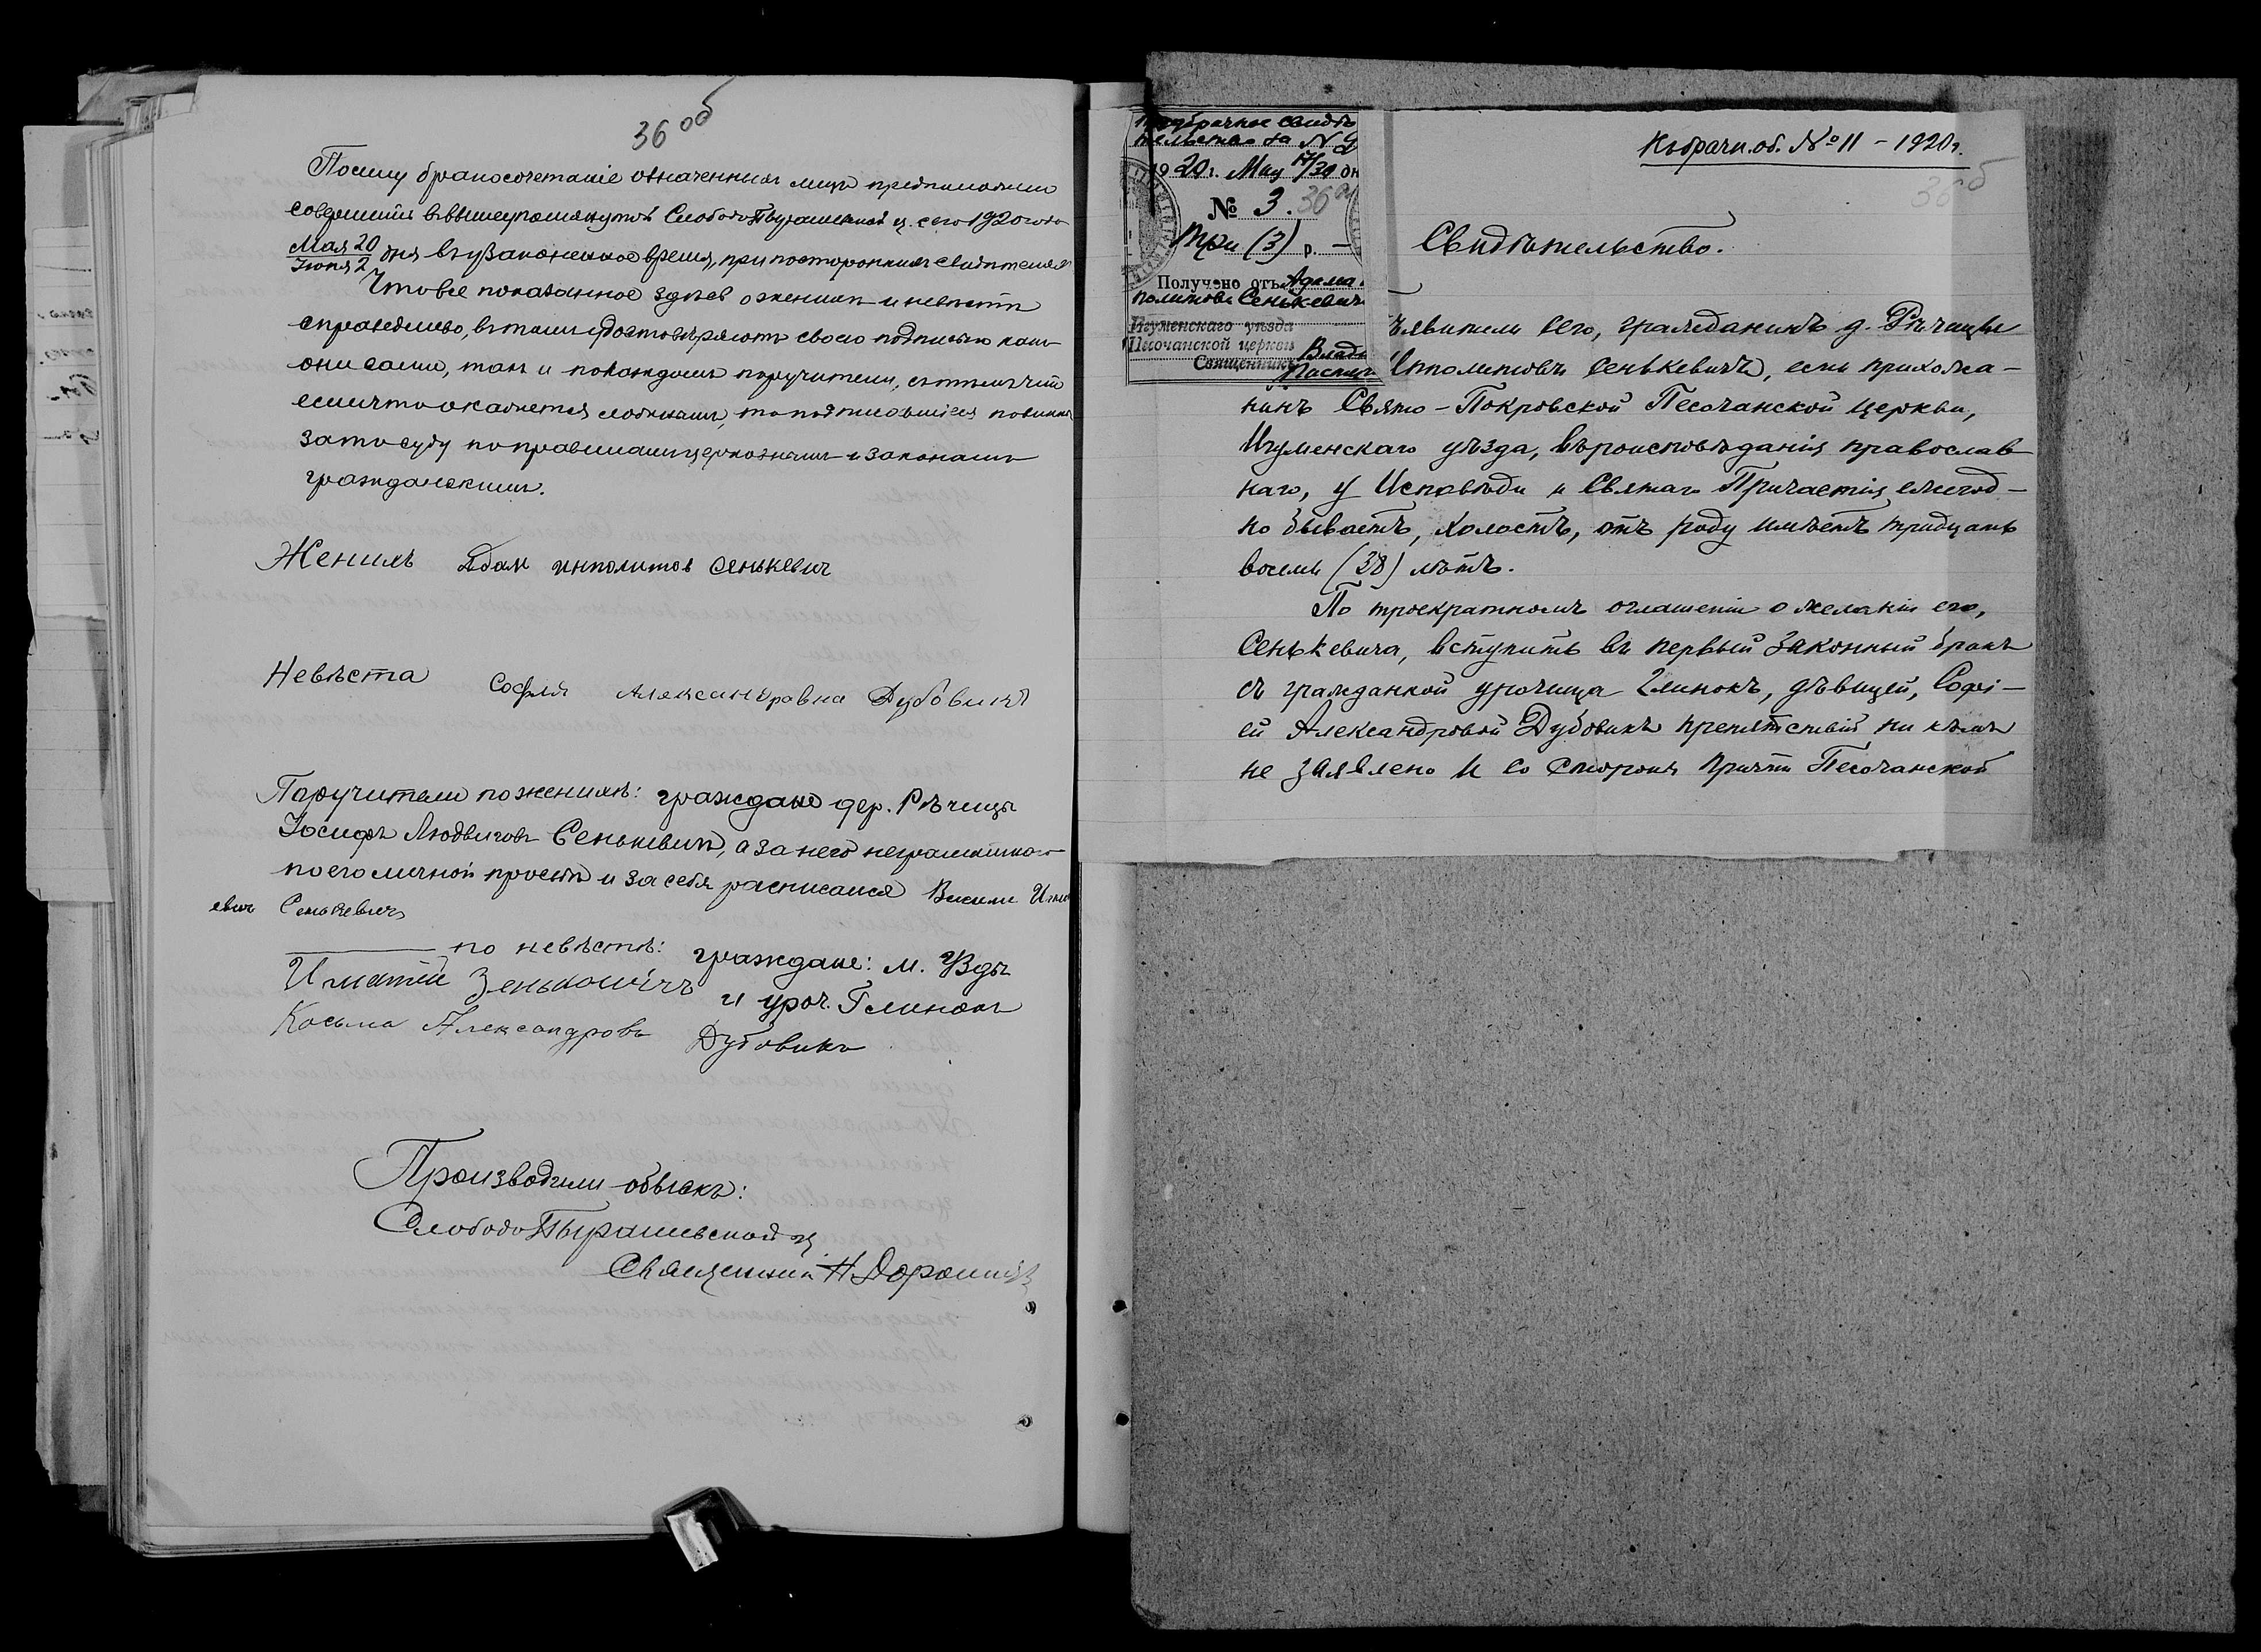 36 об
Посему бракосочетаніе означенныхъ лицъ предположено
совершить въ вышеупомянутой Слободо Пырашевской ц. сего 1920 года
Мая 20
Іюня 2 дня въ узаконенное время, при постороннихъ свидѣтеляхъ
Что все показанное здѣсь о женихѣ и невѣстѣ
справедливо, въ томъ удостовѣряютъ своею подписью какъ
они сами, такъ и по каждомъ поручители, съ тѣмъ что
если что окажется ложнымъ, то подписавшіеся повинны
за то суду по правиламъ церковнымъ и законамъ
гражданскимъ.
Женихъ Адам ипполитов Сенькевич
Невѣста Софія Александравна Дубовикъ
Поручители по женихѣ: граждане дер. Рѣчицы
Іосифъ Людвиговъ Сенькевичъ, а за него неграмотнаго
по его личной просьбѣ и за себя расписался
евич Сенькевичъ
по невѣстѣ: граждане: м. Узды
Игнатій Зеньковичъ и уроч. Глинокъ
Косьма Александровъ Дубовикъ
Производили обыскъ:
Слободо Пырашевской ц.
Священникъ Н.
Къ брачн. об. № 11 – 1920 г.
36 об
Предбрачное свидѣ
тельство за N 2
1920 г. Мая 17/30 дн
№ 3.
Три (3) р. —
Получено отъ Адама
политова Сенькевича
Игуменскаго уѣзда
Песочанской церкви
Священникъ Влади
Свидѣтельство.
ъявитель сего, гражданинъ д. Рѣчицы
Ипполитовъ Сенькевичъ, есть прихожа-
нинъ Свято-Покровской Песочанской церкви,
Игуменскаго уѣзда, вѣроисповѣданія православ-
наго, у Исповѣди и Святаго Причастія ежегод-
но бываетъ, холостъ, отъ роду имѣетъ тридцать
восемь (38) лѣтъ.
По троекратномъ оглашеніи о желаніи его,
Сенькевича, вступить въ первый законный бракъ
съ гражданкой урочища Глинокъ, дѣвицей, Софі-
ей Александровой Дубовикъ препятствій ни кѣмъ
не заявлено и со стороны причта Песочанской